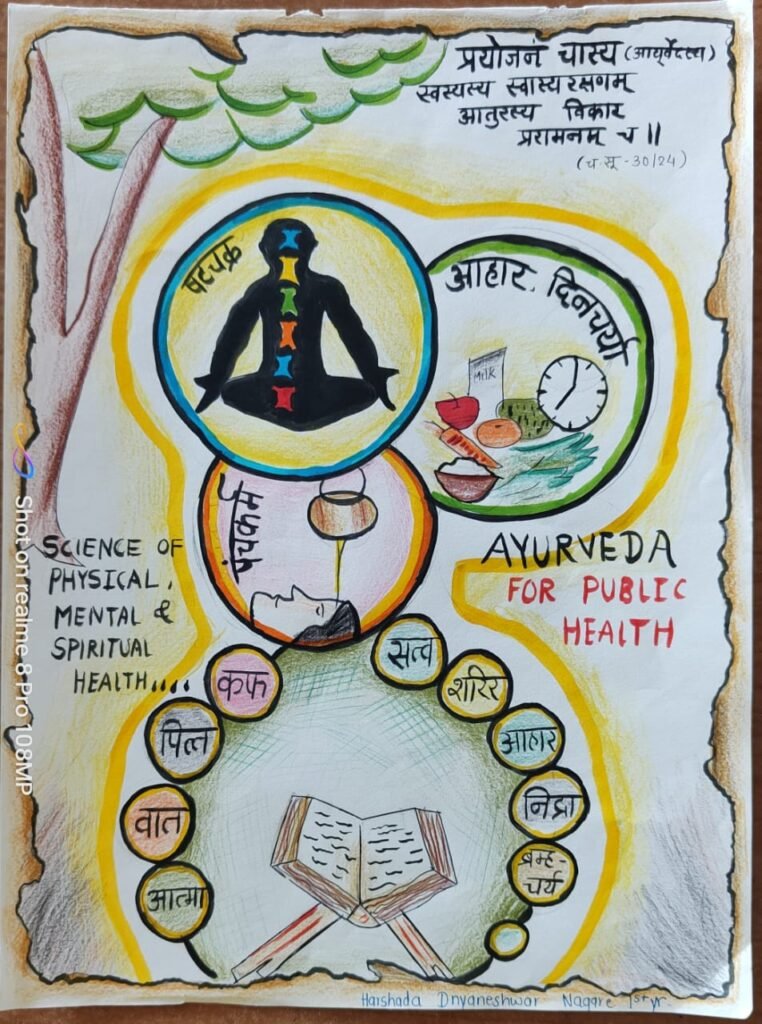 प्रयोजनं चास्य (आयुर्वेदस्य)
स्वस्यस्य स्वास्यरक्षणम्
आतुरस्य विकार
प्रशमनम् च ॥
(च.सू.-30/24)
षटचक्र
आहार, दिनचर्या
MILK
पंचकर्म
SCIENCE OF
PHYSICAL,
MENTAL &
SPIRITUAL
HEALTH....
AYURVEDA
FOR PUBLIC
HEALTH
कफ
पित्त
वात
आत्मा
सत्व
शरिर
आहार
निद्रा
ब्रम्ह-
चर्य
Harshada Dnyaneshwar Nagare 1st yr.
Shot on realme 8 Pro 108MP